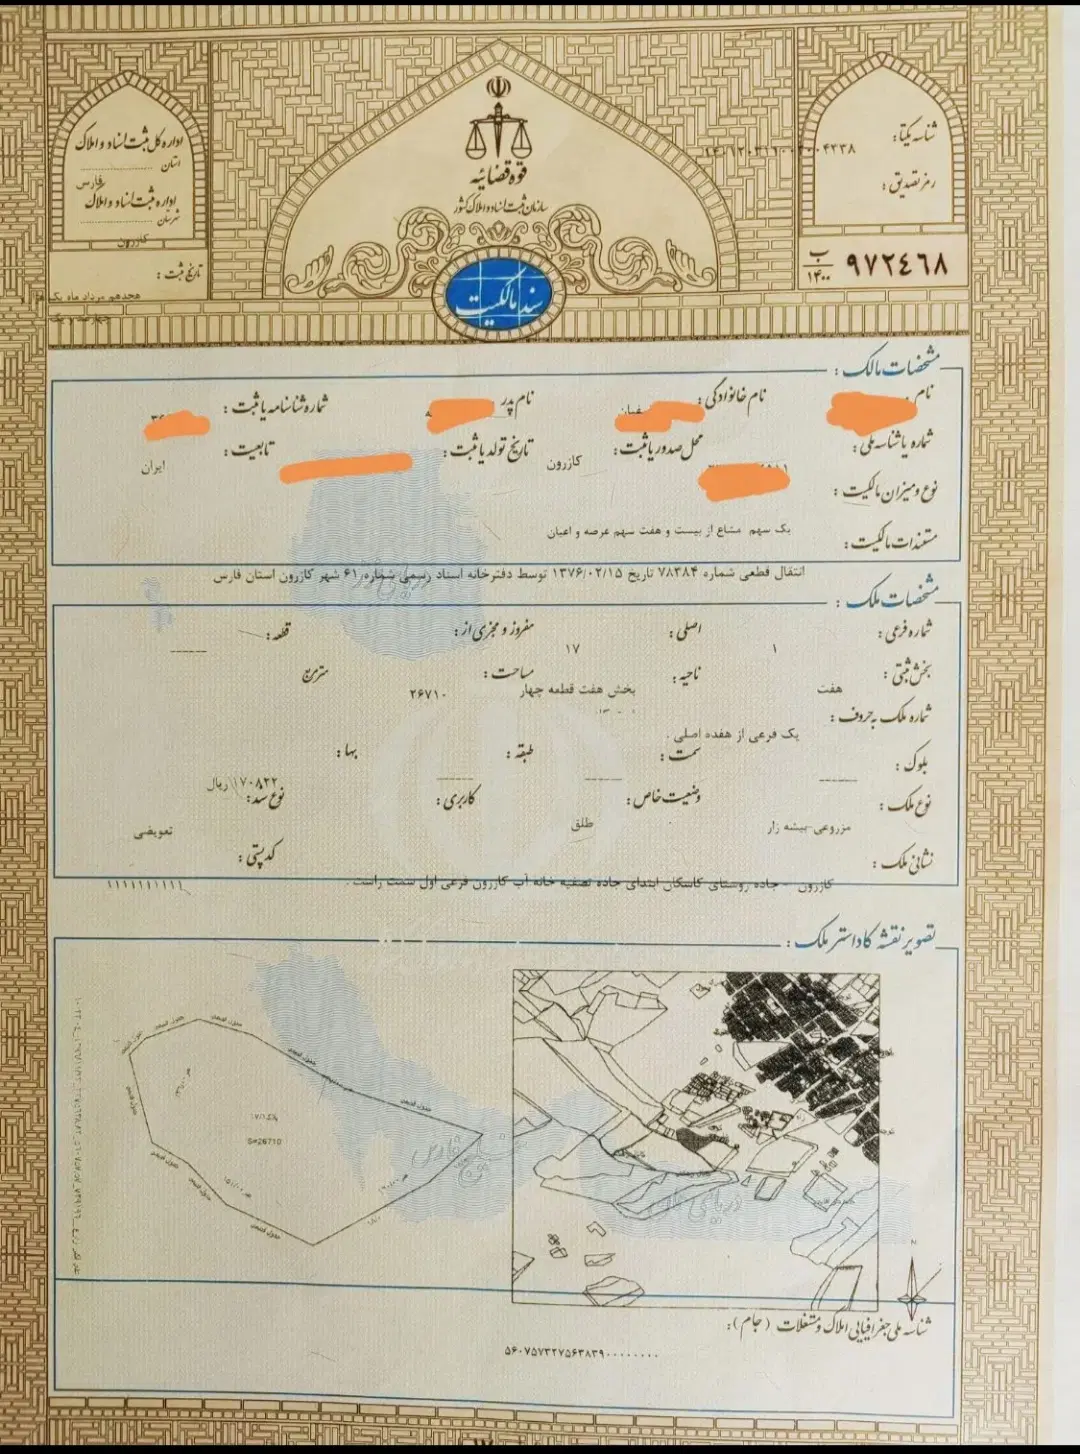 اداره کل ثبت اسناد و املاک
استان
فارس
اداره ثبت اسناد و املاک
شهرستان
کازرون
تاریخ ثبت :
هجدهم مرداد ماه یک
چهارصد و یک
قوه قضائیه
سازمان ثبت اسناد و املاک کشور
سند مالکیت
شناسه یکتا:
رمز تصدیق :
ب
۱۴۰۰
۹۷۲۴۶۸
مشخصات مالک :
نام
نام خانوادگی :
نام پدر
شماره شناسنامه یا ثبت :
شماره یا شناسه ملی :
محل صدور یا ثبت :
کازرون
تاریخ تولد یا ثبت :
تابعیت :
ایران
نوع و میزان مالکیت :
یک سهم مشاع از بیست و هفت سهم عرصه و اعیان
مستندات مالکیت :
انتقال قطعی شماره ۷۸۳۸۴ تاریخ ۱۳۷۶/۰۲/۱۵ توسط دفترخانه اسناد رسمی شماره ۶۱ شهر کازرون استان فارس
مشخصات ملک :
شماره فرعی :
۱
اصلی :
۱۷
مفروز و مجزی از :
قطعه :
بخش ثبتی :
هفت
ناحیه :
بخش هفت قطعه چهار
مساحت :
۲۶۷۱۰
مترمربع
شماره ملک به حروف :
یک فرعی از هفده اصلی .
بلوک :
سمت :
طبقه :
بها :
۱۷۰۸۲۲ ریال
نوع ملک :
مزروعی-بیشه زار
وضعیت خاص :
طلق
کاربری :
نوع سند :
تعویضی
نشانی ملک :
کازرون - جاده روستای کاسکان ابتدای جاده تصفیه خانه آب کازرون فرعی اول سمت راست .
کد پستی :
۱۱۱۱۱۱۱۱۱۱
تصویر نقشه کاداستر ملک :
S=26710
خلیج فارس
دریای
N
شناسه ملی جغرافیایی املاک و مستغلات (جام) :